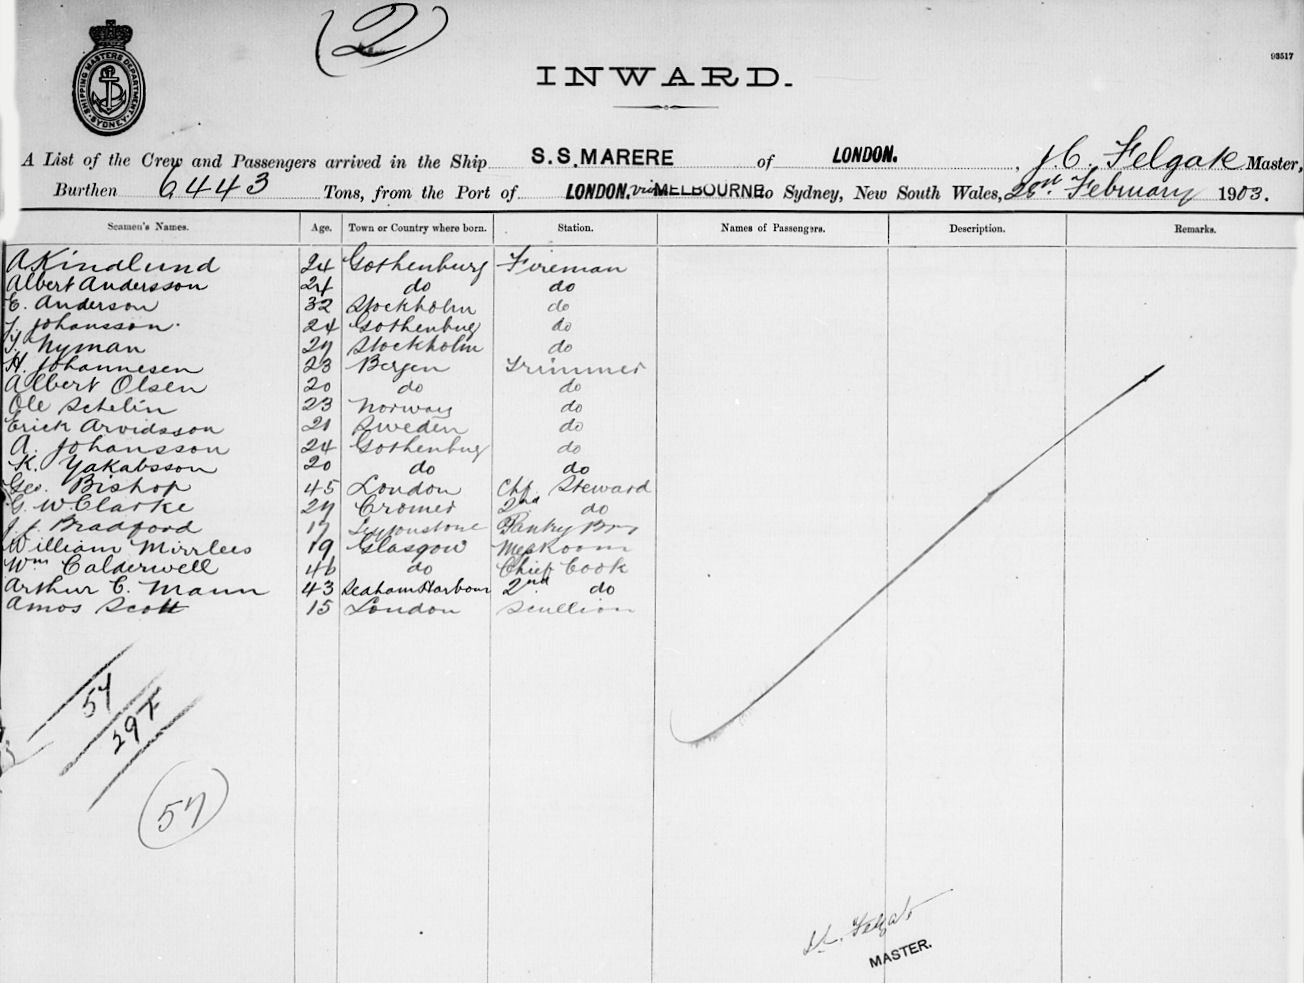 (2)
93517
SHIPPING MASTERS DEPARTMENT SYDNEY
INWARD.
A List of the Crew and Passengers arrived in the Ship S.S. MARERE of LONDON. , J. C. Felgate Master,
Burthen 6443 Tons, from the Port of LONDON. via MELBOURNE to Sydney, New South Wales, February 1903.
Seamen's Names. Age. Town or Country where born. Station. Names of Passengers. Description. Remarks.
A Kindlund 24 Gothenburg Fireman
Albert Andersson 24 do do
E. Anderson 32 Stockholm do
Johansson 24 Gothenbug do
Nyman 27 Stockholm do
H. Johannesen 23 Bergen Trimmer
Albert Olsen 20 do do
Ole Schelin 23 Norway do
Erick Arvidsson 21 Sweden do
A. Johansson 24 Gothenbug do
K. Yakabsson 20 do do
Geo. Bishop 45 London Chf. Steward
G. W Clarke 27 Cromer 2nd do
J. J. Bradford 17 Leytonstone Pantry Boy
William Mirrlees 19 Glasgow Mesroom
Wm Calderwell 46 do Chief Cook
Arthur C. Mann 43 Seaham Harbour 2nd do
Amos Scott 15 London Scullion
57
29 F
57
Felgate
MASTER.